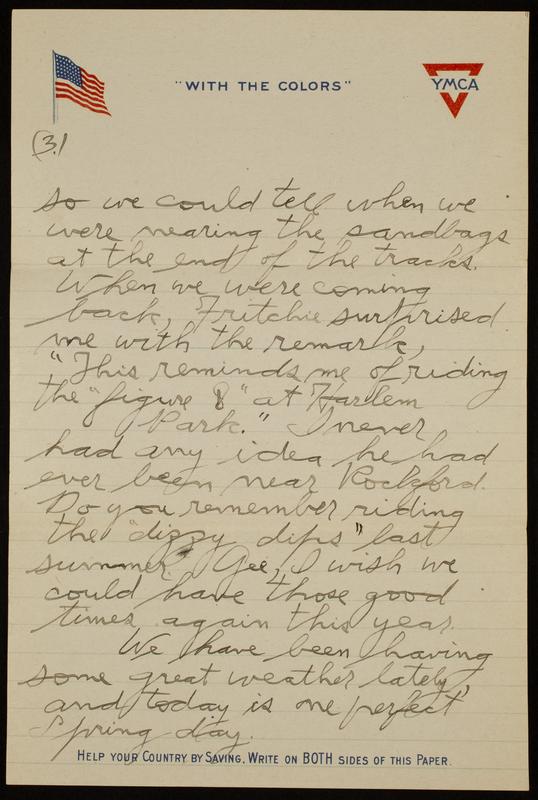 "WITH THE COLORS"
YMCA
(3.)
so we could tell when we
were nearing the sandbags
at the end of the tracks.
When we were coming
back, Fritchie surprised
me with the remark,
"This reminds me of riding
the "figure 8" at Harlem
Park." I never
had any idea he had
ever been near Rockford.
Do you remember riding
the "dizzy dips" last
summer? Gee, I wish we
could have those good
times again this year.
We have been having
some great weather lately,
and today is one perfect
Spring day.
HELP YOUR COUNTRY BY SAVING. WRITE ON BOTH SIDES OF THIS PAPER.